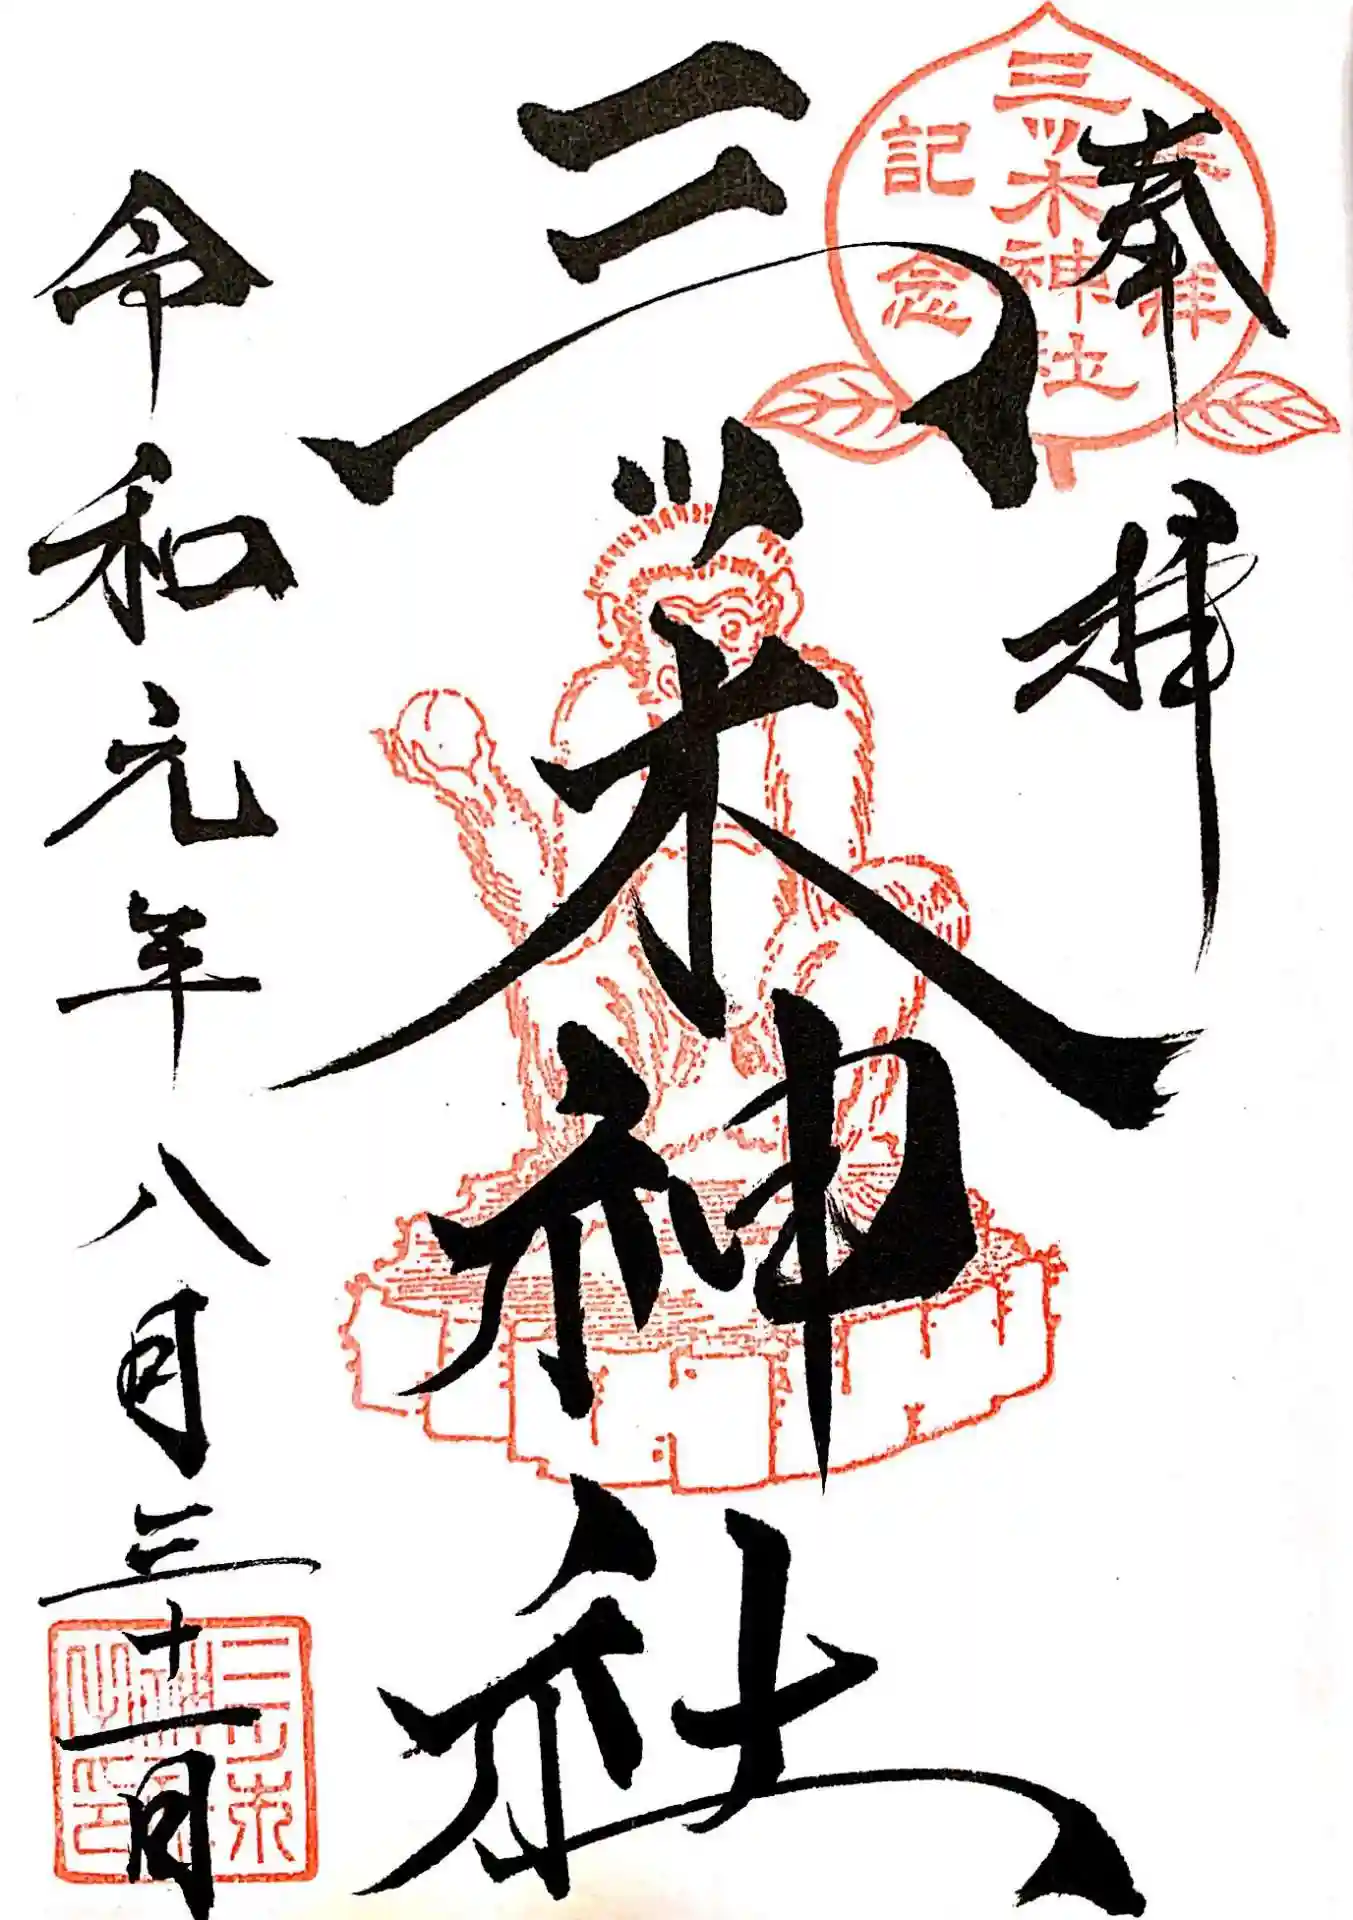 奉拝
三ツ木神社
令和元年八月三十一日
参拝
三ツ木神社
記念